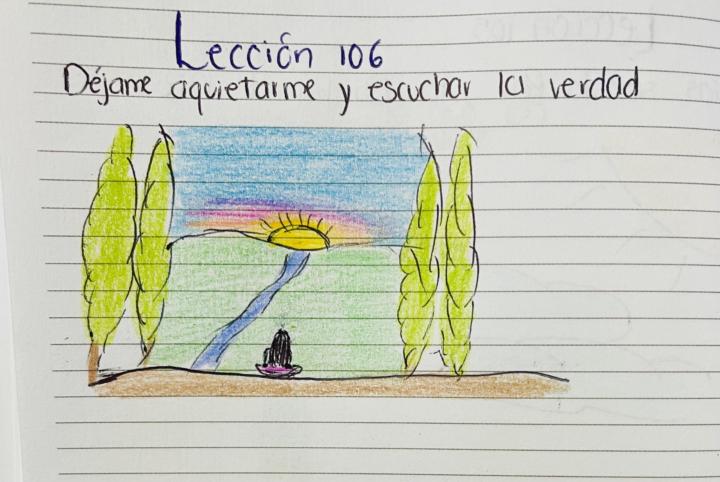 Lección 106
Déjame aquietarme y escuchar la verdad